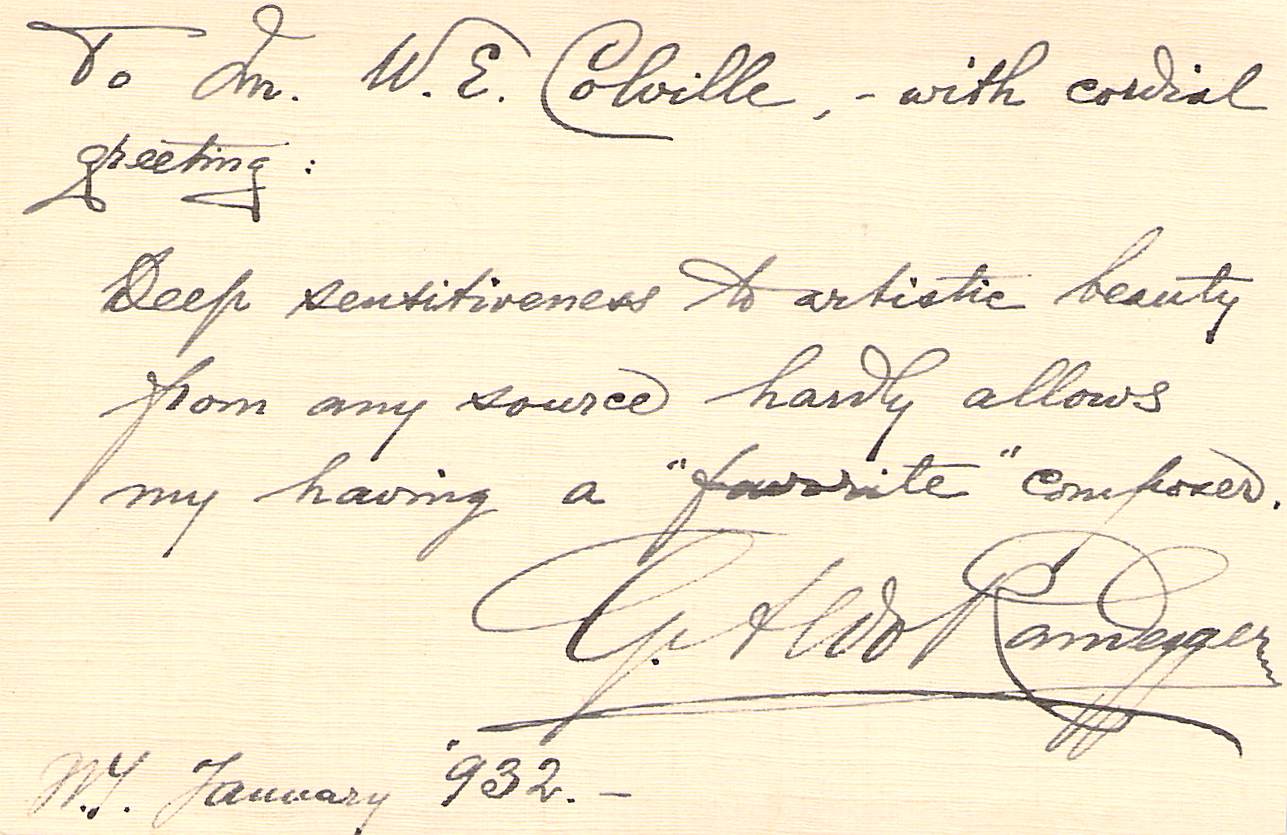 To Mr. W. E. Colville, - with cordial
greeting:
Deep sensitiveness to artistic beauty
from any source hardly allows
my having a "favorite" composer.
G. Aldo Randegger
N.Y. January '932. -